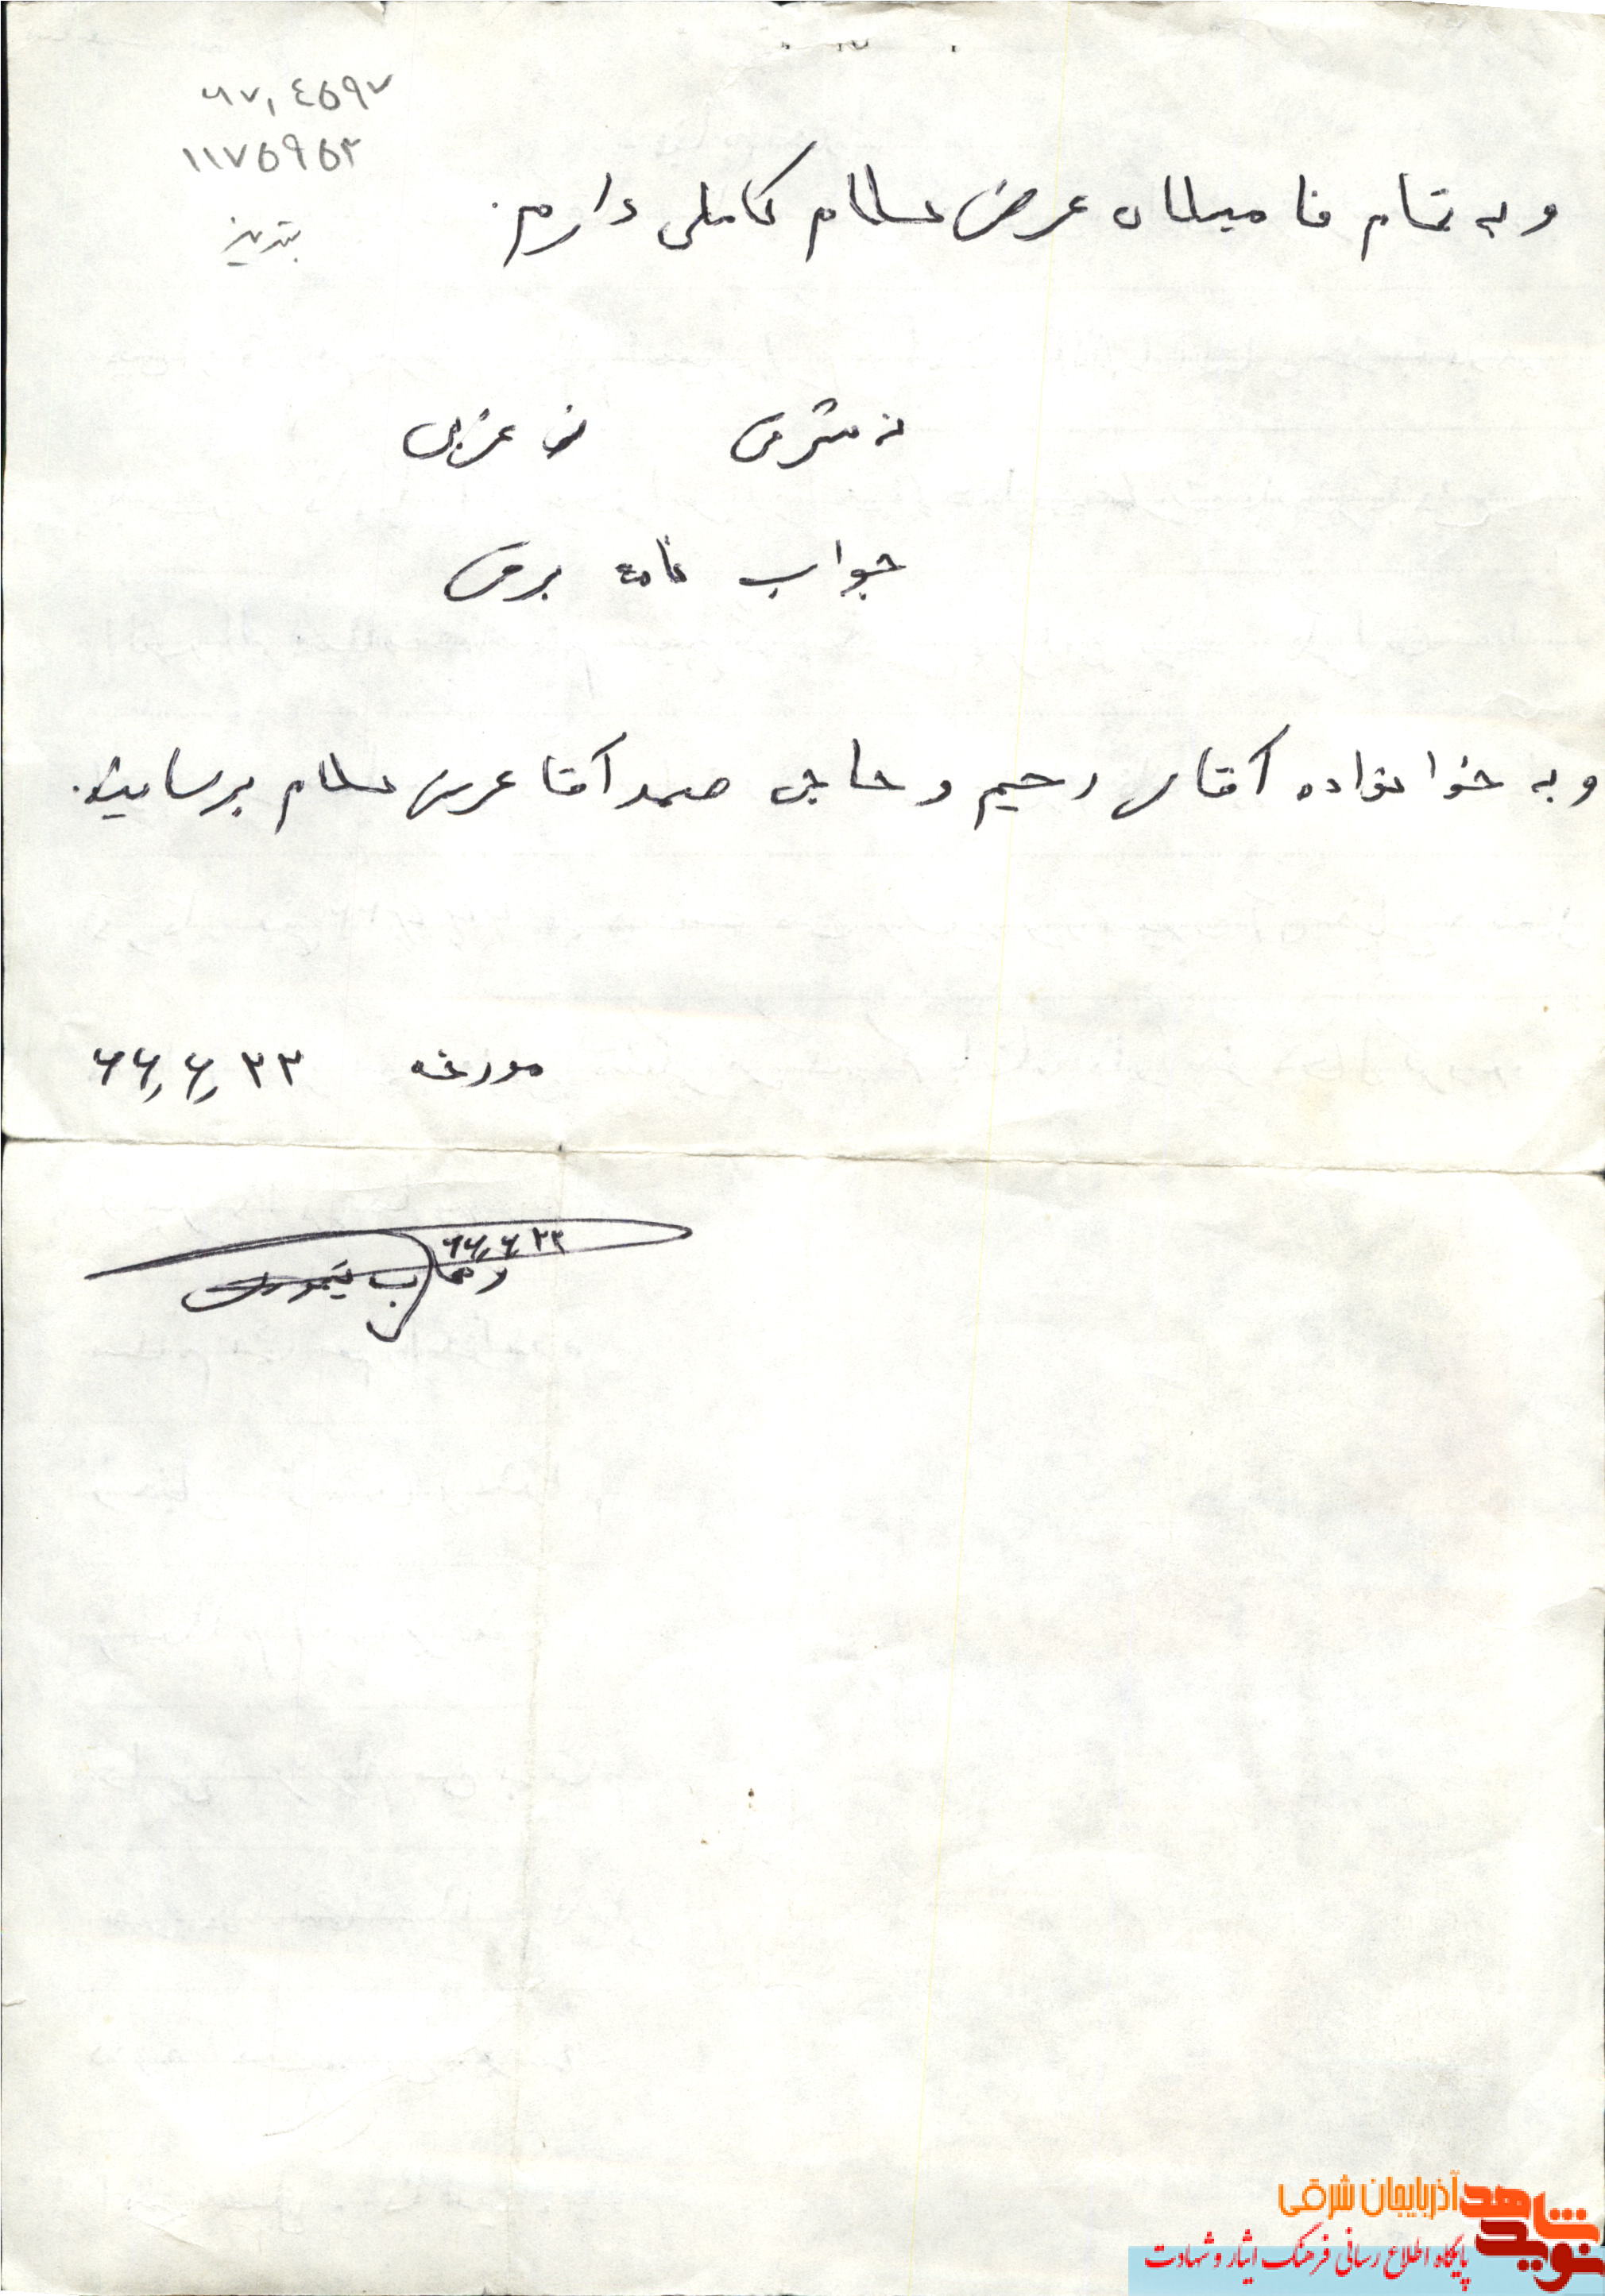 ۶۷۰۴۵۹۷
۱۱۷۵۹۵۳
تبریز
و به تمام فامیلان عرض سلام کاملی دارم.
نه شرقی نه غربی
جواب نامه برقی
و به خوانواده آقای رحیم و حاجی صمد آقا عرض سلام برسانید.
مورخه ۶۶٫۶٫۲۳
۶۶٫۶٫۲۳
وهاب تیموری
شاهد
نوید
آذربایجان شرقی
پایگاه اطلاع رسانی فرهنگ ایثار و شهادت